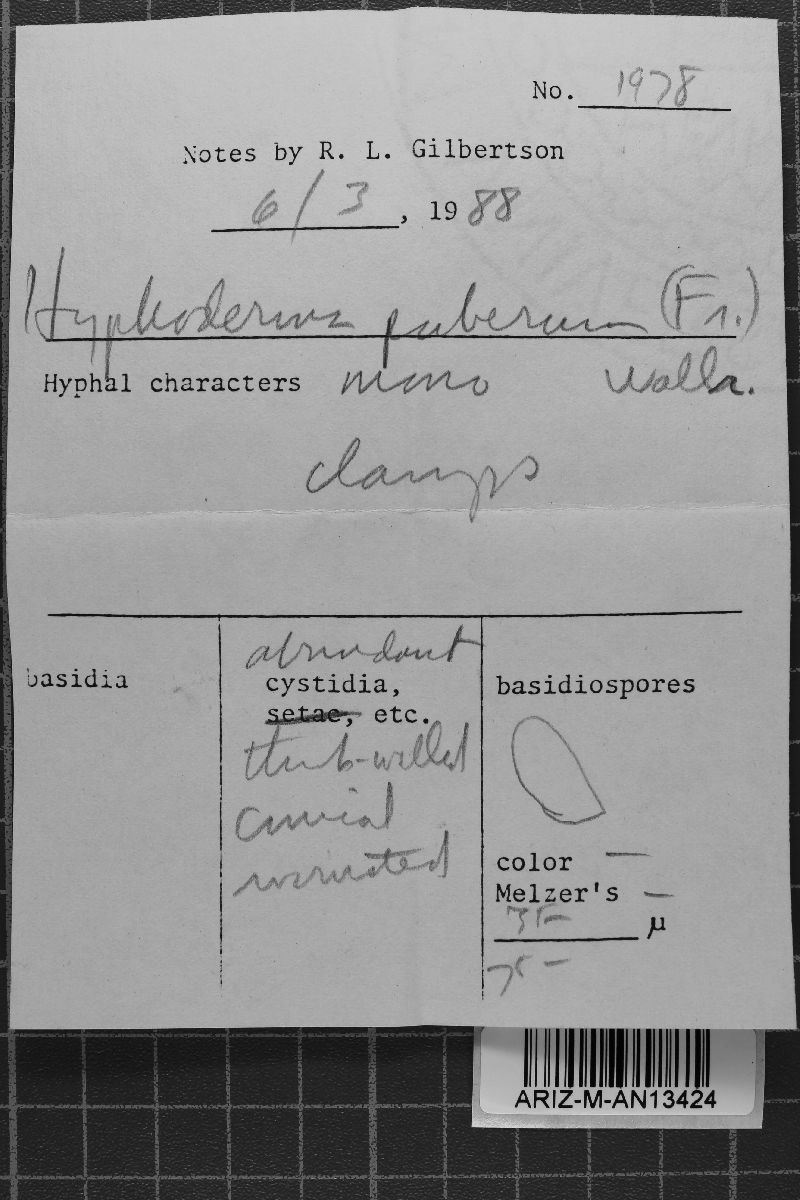 No. 1978
Notes by R. L. Gilbertson
6/3, 1988
Hyphoderma puberum (Fr.)
Hyphal characters mono Wallr.
clamps
abundant
basidia
cystidia,
basidiospores
setae, etc.
thick-walled
conical
incrusted
color —
Melzer's —
μ
ARIZ-M-AN13424